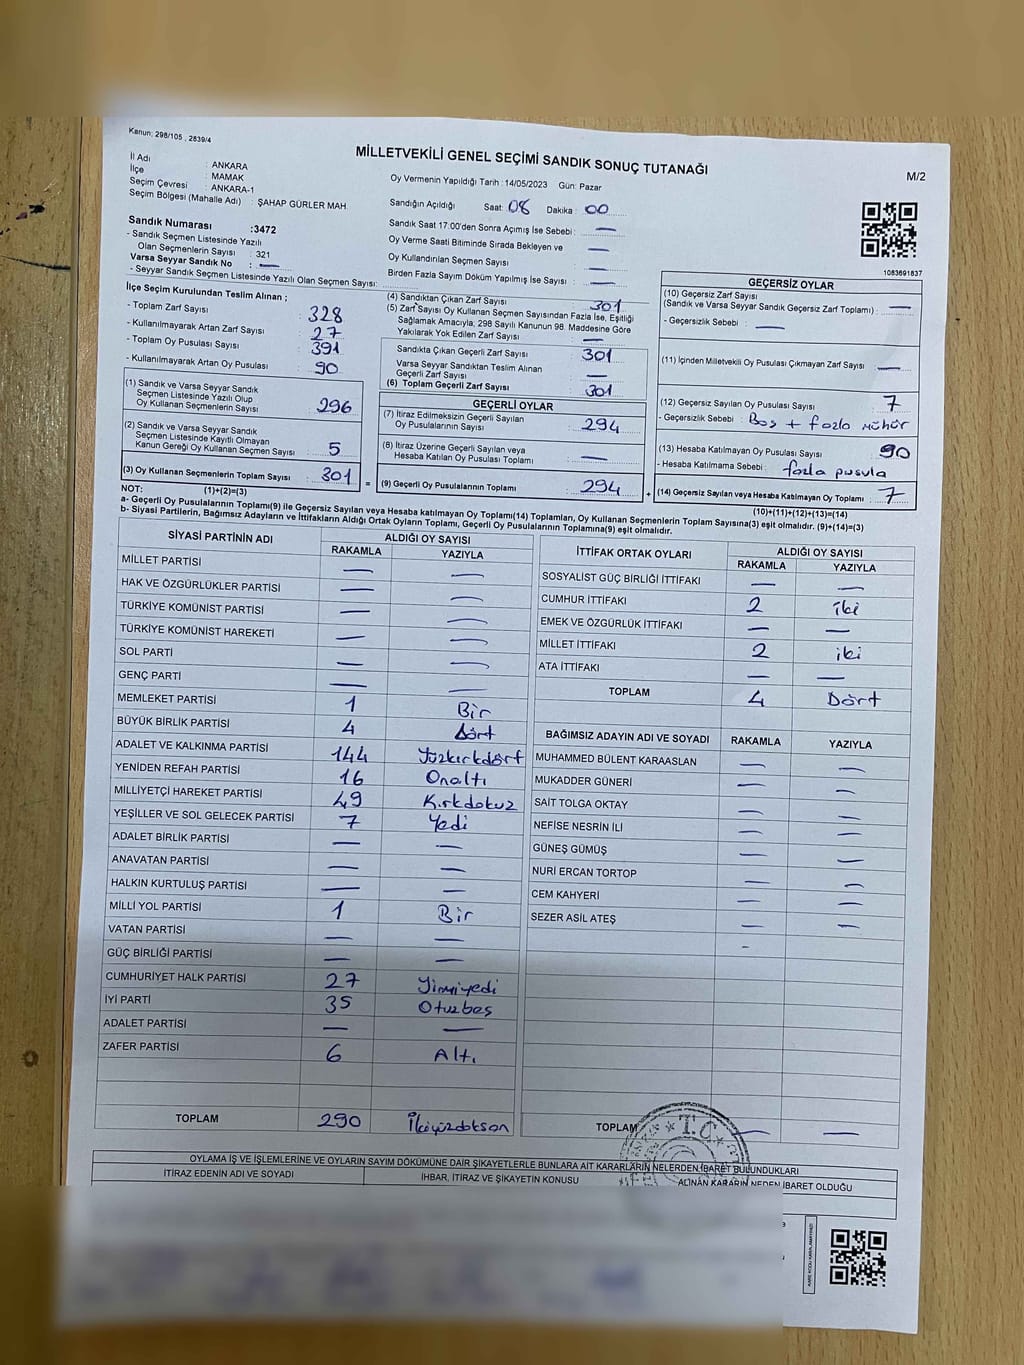 Kanun; 298/105 , 2839/4
MİLLETVEKİLİ GENEL SEÇİMİ SANDIK SONUÇ TUTANAĞI
M/2
İl Adı : ANKARA
İlçe : MAMAK
Seçim Çevresi : ANKARA-1
Seçim Bölgesi (Mahalle Adı) : ŞAHAP GÜRLER MAH.
Oy Vermenin Yapıldığı Tarih :14/05/2023 Gün: Pazar
Sandığın Açıldığı Saat: 08 Dakika : 00
Sandık Saat 17:00'den Sonra Açımış İse Sebebi : —
Oy Verme Saati Bitiminde Sırada Bekleyen ve
Oy Kullandırılan Seçmen Sayısı : —
Birden Fazla Sayım Döküm Yapılmış İse Sayısı : —
Sandık Numarası :3472
- Sandık Seçmen Listesinde Yazılı
Olan Seçmenlerin Sayısı : 321
Varsa Seyyar Sandık No : —
- Seyyar Sandık Seçmen Listesinde Yazılı Olan Seçmen Sayısı:
1083691837
İlçe Seçim Kurulundan Teslim Alınan ;
- Toplam Zarf Sayısı : 328
- Kullanılmayarak Artan Zarf Sayısı : 27
- Toplam Oy Pusulası Sayısı : 391
- Kullanılmayarak Artan Oy Pusulası : 90
(1) Sandık ve Varsa Seyyar Sandık
Seçmen Listesinde Yazılı Olup
Oy Kullanan Seçmenlerin Sayısı : 296
(2) Sandık ve Varsa Seyyar Sandık
Seçmen Listesinde Kayıtlı Olmayan
Kanun Gereği Oy Kullanan Seçmen Sayısı : 5
(3) Oy Kullanan Seçmenlerin Toplam Sayısı : 301
(1)+(2)=(3)
(4) Sandıktan Çıkan Zarf Sayısı : 301
(5) Zarf Sayısı Oy Kullanan Seçmen Sayısından Fazla İse, Eşitliği
Sağlamak Amacıyla; 298 Sayılı Kanunun 98. Maddesine Göre
Yakılarak Yok Edilen Zarf Sayısı : —
Sandıkta Çıkan Geçerli Zarf Sayısı : 301
Varsa Seyyar Sandıktan Teslim Alınan
Geçerli Zarf Sayısı : —
(6) Toplam Geçerli Zarf Sayısı : 301
GEÇERLİ OYLAR
(7) İtiraz Edilmeksizin Geçerli Sayılan
Oy Pusulalarının Sayısı : 294
(8) İtiraz Üzerine Geçerli Sayılan veya
Hesaba Katılan Oy Pusulası Toplamı : —
= (9) Geçerli Oy Pusulalarının Toplamı : 294 +
GEÇERSİZ OYLAR
(10) Geçersiz Zarf Sayısı
(Sandık ve Varsa Seyyar Sandık Geçersiz Zarf Toplamı) : —
- Geçersizlik Sebebi : —
(11) İçinden Milletvekili Oy Pusulası Çıkmayan Zarf Sayısı : —
(12) Geçersiz Sayılan Oy Pusulası Sayısı : 7
- Geçersizlik Sebebi : Boş + fazla mühür
(13) Hesaba Katılmayan Oy Pusulası Sayısı : 90
- Hesaba Katılmama Sebebi : fazla pusula
(14) Geçersiz Sayılan veya Hesaba Katılmayan Oy Toplamı : 7
(10)+(11)+(12)+(13)=(14)
NOT:
a- Geçerli Oy Pusulalarının Toplamı(9) ile Geçersiz Sayılan veya Hesaba katılmayan Oy Toplamı(14) Toplamları, Oy Kullanan Seçmenlerin Toplam Sayısına(3) eşit olmalıdır. (9)+(14)=(3)
b- Siyasi Partilerin, Bağımsız Adayların ve İttifakların Aldığı Ortak Oyların Toplamı, Geçerli Oy Pusulalarının Toplamına(9) eşit olmalıdır.
SİYASİ PARTİNİN ADI ALDIĞI OY SAYISI
RAKAMLA YAZIYLA
MİLLET PARTİSİ — —
HAK VE ÖZGÜRLÜKLER PARTİSİ — —
TÜRKİYE KOMÜNİST PARTİSİ — —
TÜRKİYE KOMÜNİST HAREKETİ — —
SOL PARTİ — —
GENÇ PARTİ — —
MEMLEKET PARTİSİ 1 Bir
BÜYÜK BİRLİK PARTİSİ 4 Dört
ADALET VE KALKINMA PARTİSİ 144 Yüzkırkdört
YENİDEN REFAH PARTİSİ 16 Onaltı
MİLLİYETÇİ HAREKET PARTİSİ 49 Kırkdokuz
YEŞİLLER VE SOL GELECEK PARTİSİ 7 Yedi
ADALET BİRLİK PARTİSİ — —
ANAVATAN PARTİSİ — —
HALKIN KURTULUŞ PARTİSİ — —
MİLLİ YOL PARTİSİ 1 Bir
VATAN PARTİSİ — —
GÜÇ BİRLİĞİ PARTİSİ — —
CUMHURİYET HALK PARTİSİ 27 Yirmiyedi
İYİ PARTİ 35 Otuzbeş
ADALET PARTİSİ — —
ZAFER PARTİSİ 6 Altı
TOPLAM 290 İkiyüzdoksan
İTTİFAK ORTAK OYLARI ALDIĞI OY SAYISI
RAKAMLA YAZIYLA
SOSYALİST GÜÇ BİRLİĞİ İTTİFAKI — —
CUMHUR İTTİFAKI 2 iki
EMEK VE ÖZGÜRLÜK İTTİFAKI — —
MİLLET İTTİFAKI 2 iki
ATA İTTİFAKI — —
TOPLAM 4 Dört
BAĞIMSIZ ADAYIN ADI VE SOYADI RAKAMLA YAZIYLA
MUHAMMED BÜLENT KARAASLAN — —
MUKADDER GÜNERİ — —
SAİT TOLGA OKTAY — —
NEFİSE NESRİN İLİ — —
GÜNEŞ GÜMÜŞ — —
NURİ ERCAN TORTOP — —
CEM KAHYERİ — —
SEZER ASİL ATEŞ — —
-
TOPLAM — —
T.C.
OYLAMA İŞ VE İŞLEMLERİNE VE OYLARIN SAYIM DÖKÜMÜNE DAİR ŞİKAYETLERLE BUNLARA AİT KARARLARIN NELERDEN İBARET BULUNDUKLARI
İTİRAZ EDENİN ADI VE SOYADI İHBAR, İTİRAZ VE ŞİKAYETİN KONUSU ALINAN KARARIN NEDEN İBARET OLDUĞU